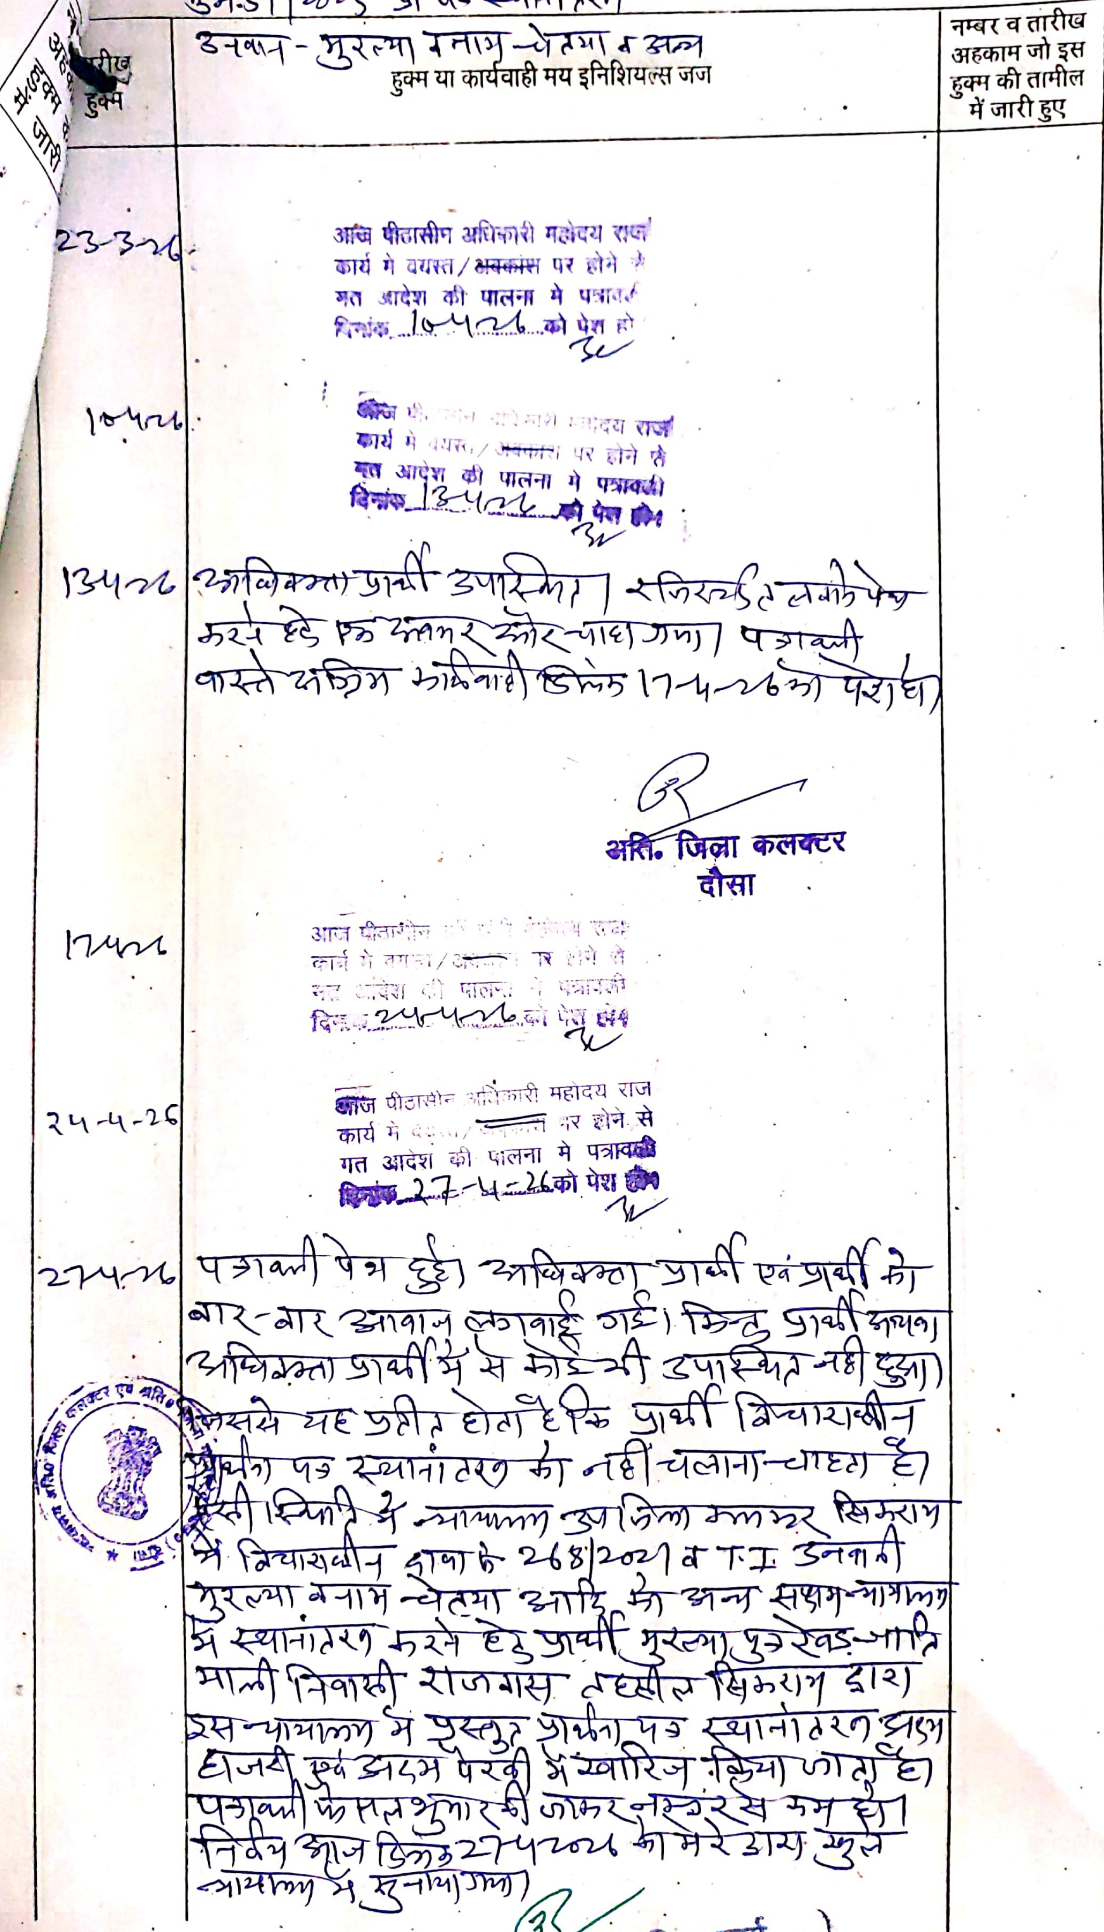 उनवान - मुरल्या बनाम चेतया व अन्य
तारीख
हुक्म
हुक्म या कार्यवाही मय इनिशियल्स जज
नम्बर व तारीख
अहकाम जो इस
हुक्म की तामील
में जारी हुए
जारी
23-3-26
आज पीठासीन अधिकारी महोदय राज
कार्य मे वयस्त/अवकाश पर होने से
गत आदेश की पालना मे पत्रावली
दिनांक 10-4-26 को पेश हो
10-4-26
आज पी अधिकारी महोदय राज
कार्य मे वयस्त/अवकाश पर होने से
गत आदेश की पालना मे पत्रावली
दिनांक 13-4-26 को पेश हो।
13-4-26
अधिवक्ता प्रार्थी उपस्थित। रजिस्टर्ड तलबाने पेश
करने हेतु एक अवसर और चाहा गया। पत्रावली
वास्ते अग्रिम कार्यवाही दिनांक 17-4-26 को पेश हो।
अति. जिला कलक्टर
दौसा
17-4-26
आज पीठासीन महोदय राज
कार्य मे वयस्त/अवकाश पर होने से
गत आदेश की पालना मे पत्रावली
दिनांक 24-4-26 को पेश हो।
24-4-26
आज पीठासीन अधिकारी महोदय राज
कार्य मे वयस्त/अवकाश पर होने से
गत आदेश की पालना मे पत्रावली
दिनांक 27-4-26 को पेश हो।
27-4-26
पत्रावली पेश हुई। अधिवक्ता प्रार्थी एवं प्रार्थी को
बार-बार आवाज लगवाई गई। किन्तु प्रार्थी अथवा
अधिवक्ता प्रार्थी में से कोई भी उपस्थित नहीं हुआ।
जिससे यह प्रतीत होता है कि प्रार्थी विचाराधीन
प्रार्थना पत्र स्थानांतरण को नहीं चलाना चाहता है।
ऐसी स्थिति में न्यायालय उप जिला कलक्टर सिकराय
में विचाराधीन दावा के 268/2021 व T.I. उनवानी
मुरल्या बनाम चेतया आदि को अन्य सक्षम न्यायालय
में स्थानांतरण करने हेतु प्रार्थी मुरल्या पुत्र रेवड़ जाति
माली निवासी राजवास तहसील सिकराय द्वारा
इस न्यायालय में प्रस्तुत प्रार्थना पत्र स्थानांतरण अदम
हाजरी एवं अदम पैरवी में खारिज किया जाता है।
पत्रावली फैसल शुमार की जाकर नम्बर से कम हो।
निर्णय आज दिनांक 27-4-2026 को मेरे द्वारा खुले
न्यायालय में सुनाया गया।